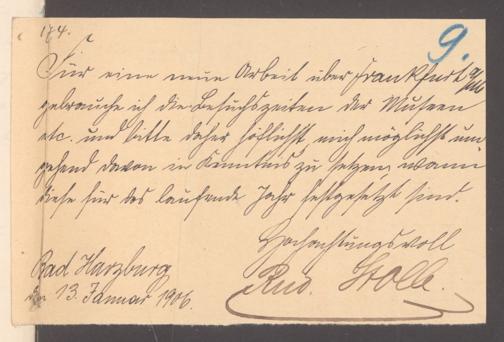 174.
9.
Für eine neue Arbeit über Frankfurt a/M
gebrauche ich die Besuchszeiten der Museen
etc. und bitte daher höflichst mich möglichst um-
gehend davon in Kenntnis zu setzen, wann
diese für das laufende Jahr festgesetzt sind.
Hochachtungsvoll
Rud. Stolle.
Bad Harzburg
den 13. Januar 1906.